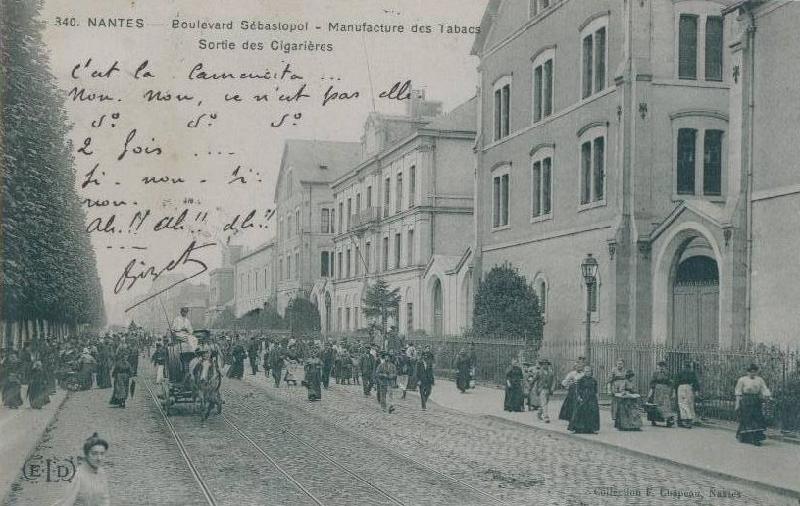 340. NANTES — Boulevard Sébastopol - Manufacture des Tabacs
Sortie des Cigarières
c'est la Carmencita ...
Non. non, ce n'est pas elle.
d° d° d°
2 fois ....
Si - non - Si.
non.
Ah.!! ah.!! ah!!
Bizet
E.L.D
Collection F. Chapeau, Nantes